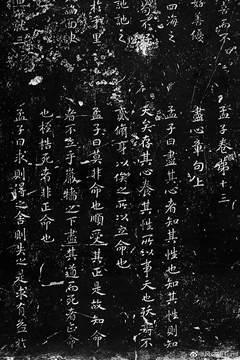 好善優
四海之
訑訑之
孟子卷第十三
盡心章句上
孟子曰盡其心者知其性也知其性則知
天矣存其心養其性所以事天也殀壽不
貳脩身以俟之所以立命也
孟子曰莫非命也順受其正是故知命
者不立乎巖牆之下盡其道而死者正命
也桎梏死者非正命也
孟子曰求則得之舍則失之是求有益於